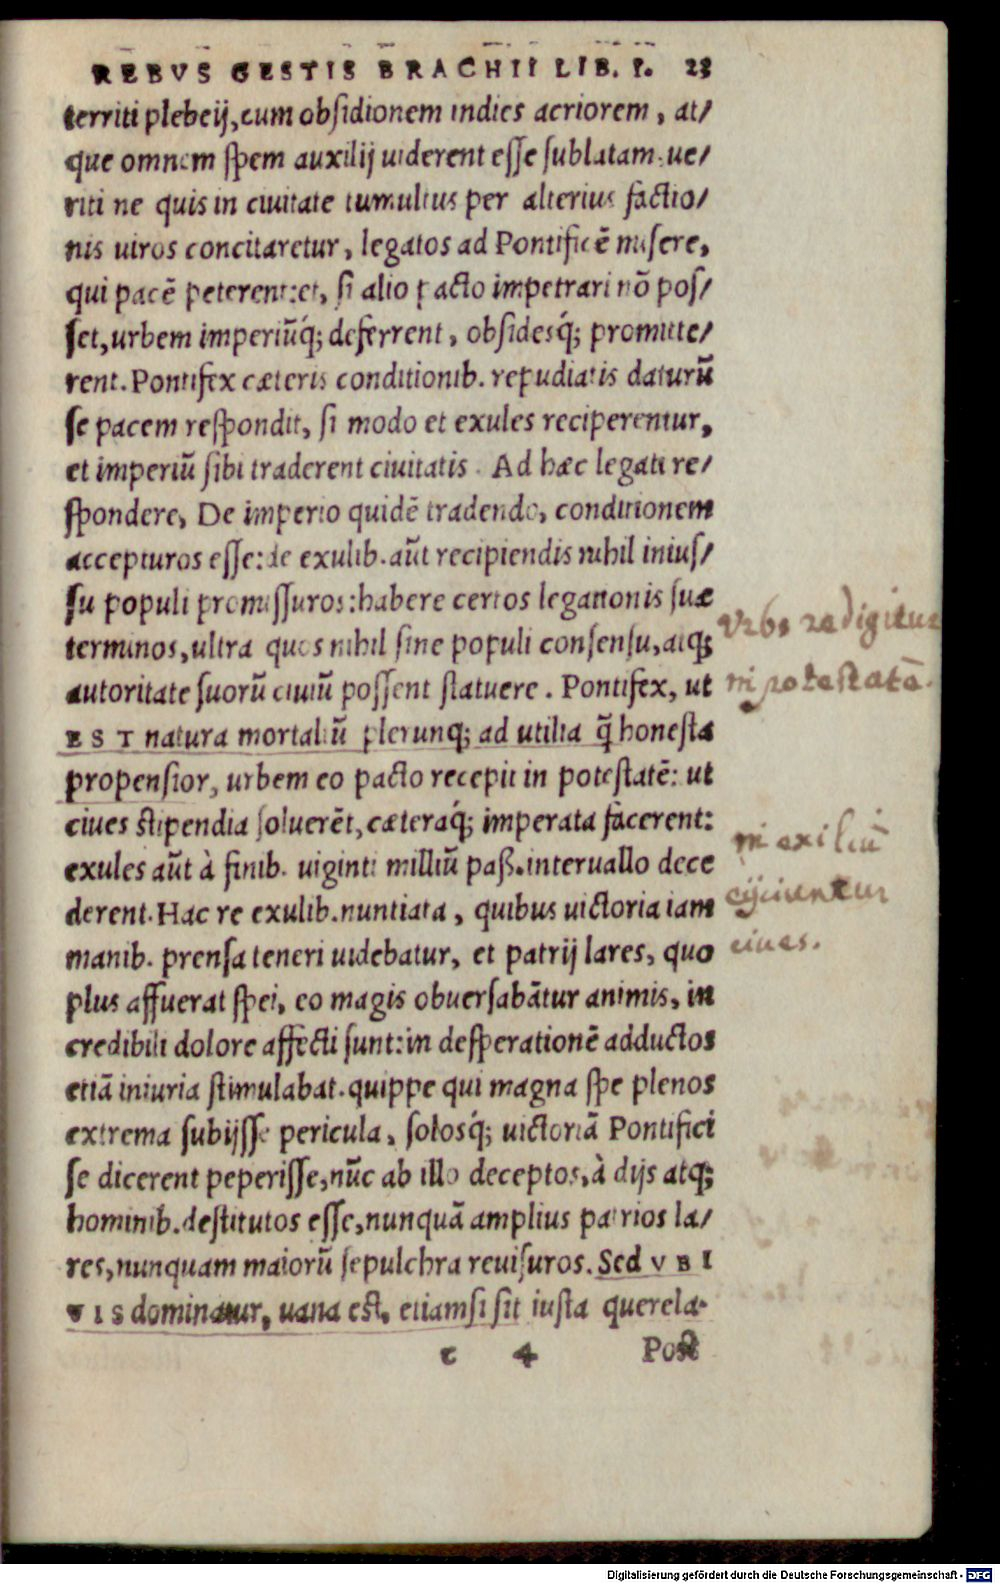 REBVS GESTIS BRACHII LIB. I. 23
territi plebeij, cum obsidionem indies acriorem, at/
que omnem spem auxilij uiderent esse sublatam. ue/
riti ne quis in ciuitate tumultus per alterius factio/
nis uiros concitaretur, legatos ad Pontificē misere,
qui pacē peterent: et, si alio pacto impetrari nō pos/
set, urbem imperiūq́; deferrent, obsidesq́; promitte/
rent. Pontifex cæteris conditionib. repudiatis daturū
se pacem respondit, si modo et exules reciperentur,
et imperiū sibi traderent ciuitatis. Ad hæc legati re/
spondere, De imperio quidē tradendo, conditionem
accepturos esse: de exulib. aūt recipiendis nihil inius/
su populi promissuros: habere certos legationis suæ
terminos, ultra quos nihil sine populi consensu, atq;
autoritate suorū ciuiū possent statuere. Pontifex, ut
EST natura mortaliū plerunq; ad utilia q̄ honesta
propensior, urbem eo pacto recepit in potestatē: ut
ciues stipendia soluerēt, cæteraq́; imperata facerent:
exules aūt à finib. uiginti milliū paß. interuallo dece
derent. Hac re exulib. nuntiata, quibus uictoria iam
manib. prensa teneri uidebatur, et patrij lares, quo
plus affuerat spei, eo magis obuersabātur animis, in
credibili dolore affecti sunt: in desperationē adductos
etiā iniuria stimulabat. quippe qui magna spe plenos
extrema subijsse pericula, solosq́; uictoriā Pontifici
se dicerent peperisse, nūc ab illo deceptos, à dijs atq;
hominib. destitutos esse, nunquā amplius patrios la/
res, nunquam maiorū sepulchra reuisuros. Sed VBI
VIS dominatur, uana est, etiamsi sit iusta querela.
c 4 Post
Vrbs redigitur
in potestatē.
in exiliū
eijciuntur
ciues.
Digitalisierung gefördert durch die Deutsche Forschungsgemeinschaft - DFG